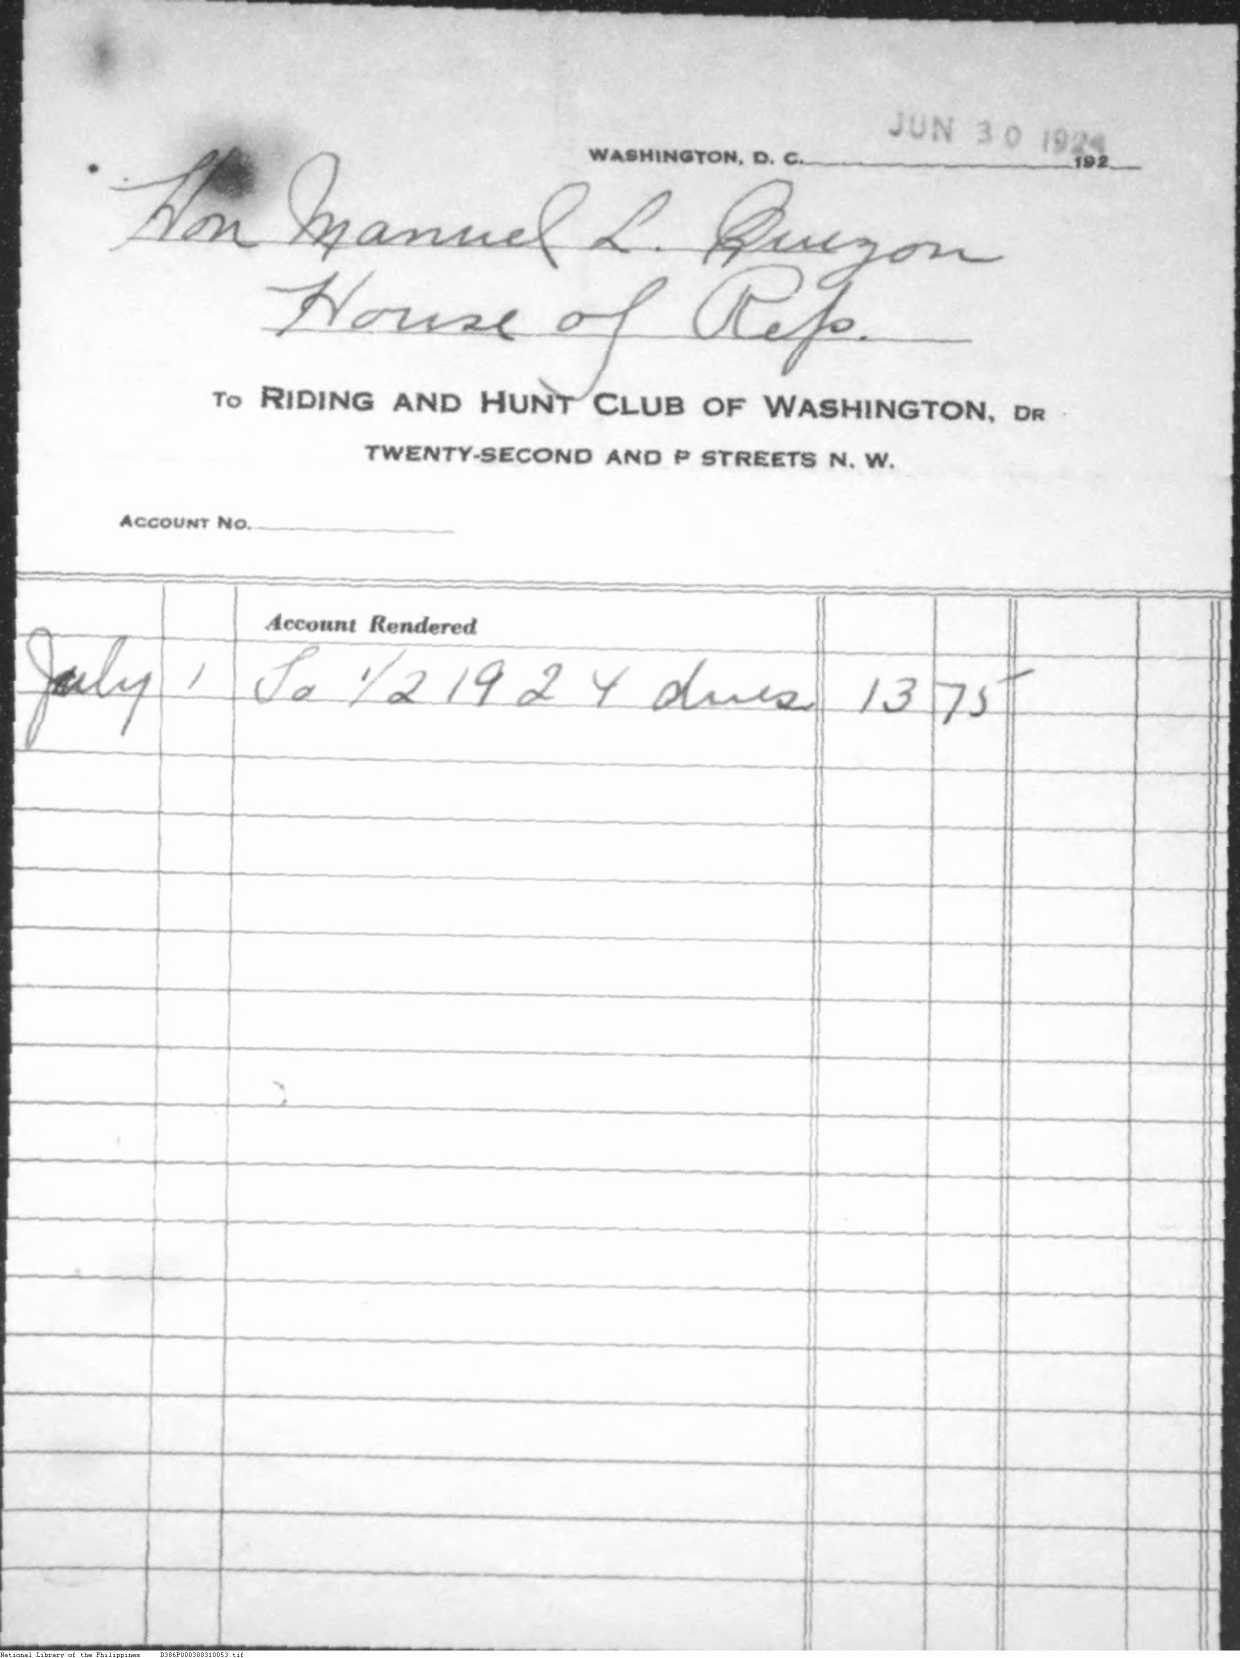 JUN 30 1924
WASHINGTON, D. C. 192
Hon Manuel L. Quezon
House of Reps.
TO RIDING AND HUNT CLUB OF WASHINGTON, DR
TWENTY-SECOND AND P STREETS N. W.
ACCOUNT NO.
Account Rendered
July 1 To 1/2 1924 dues 13 75
National Library of the Philippines D386P000308310053.tif